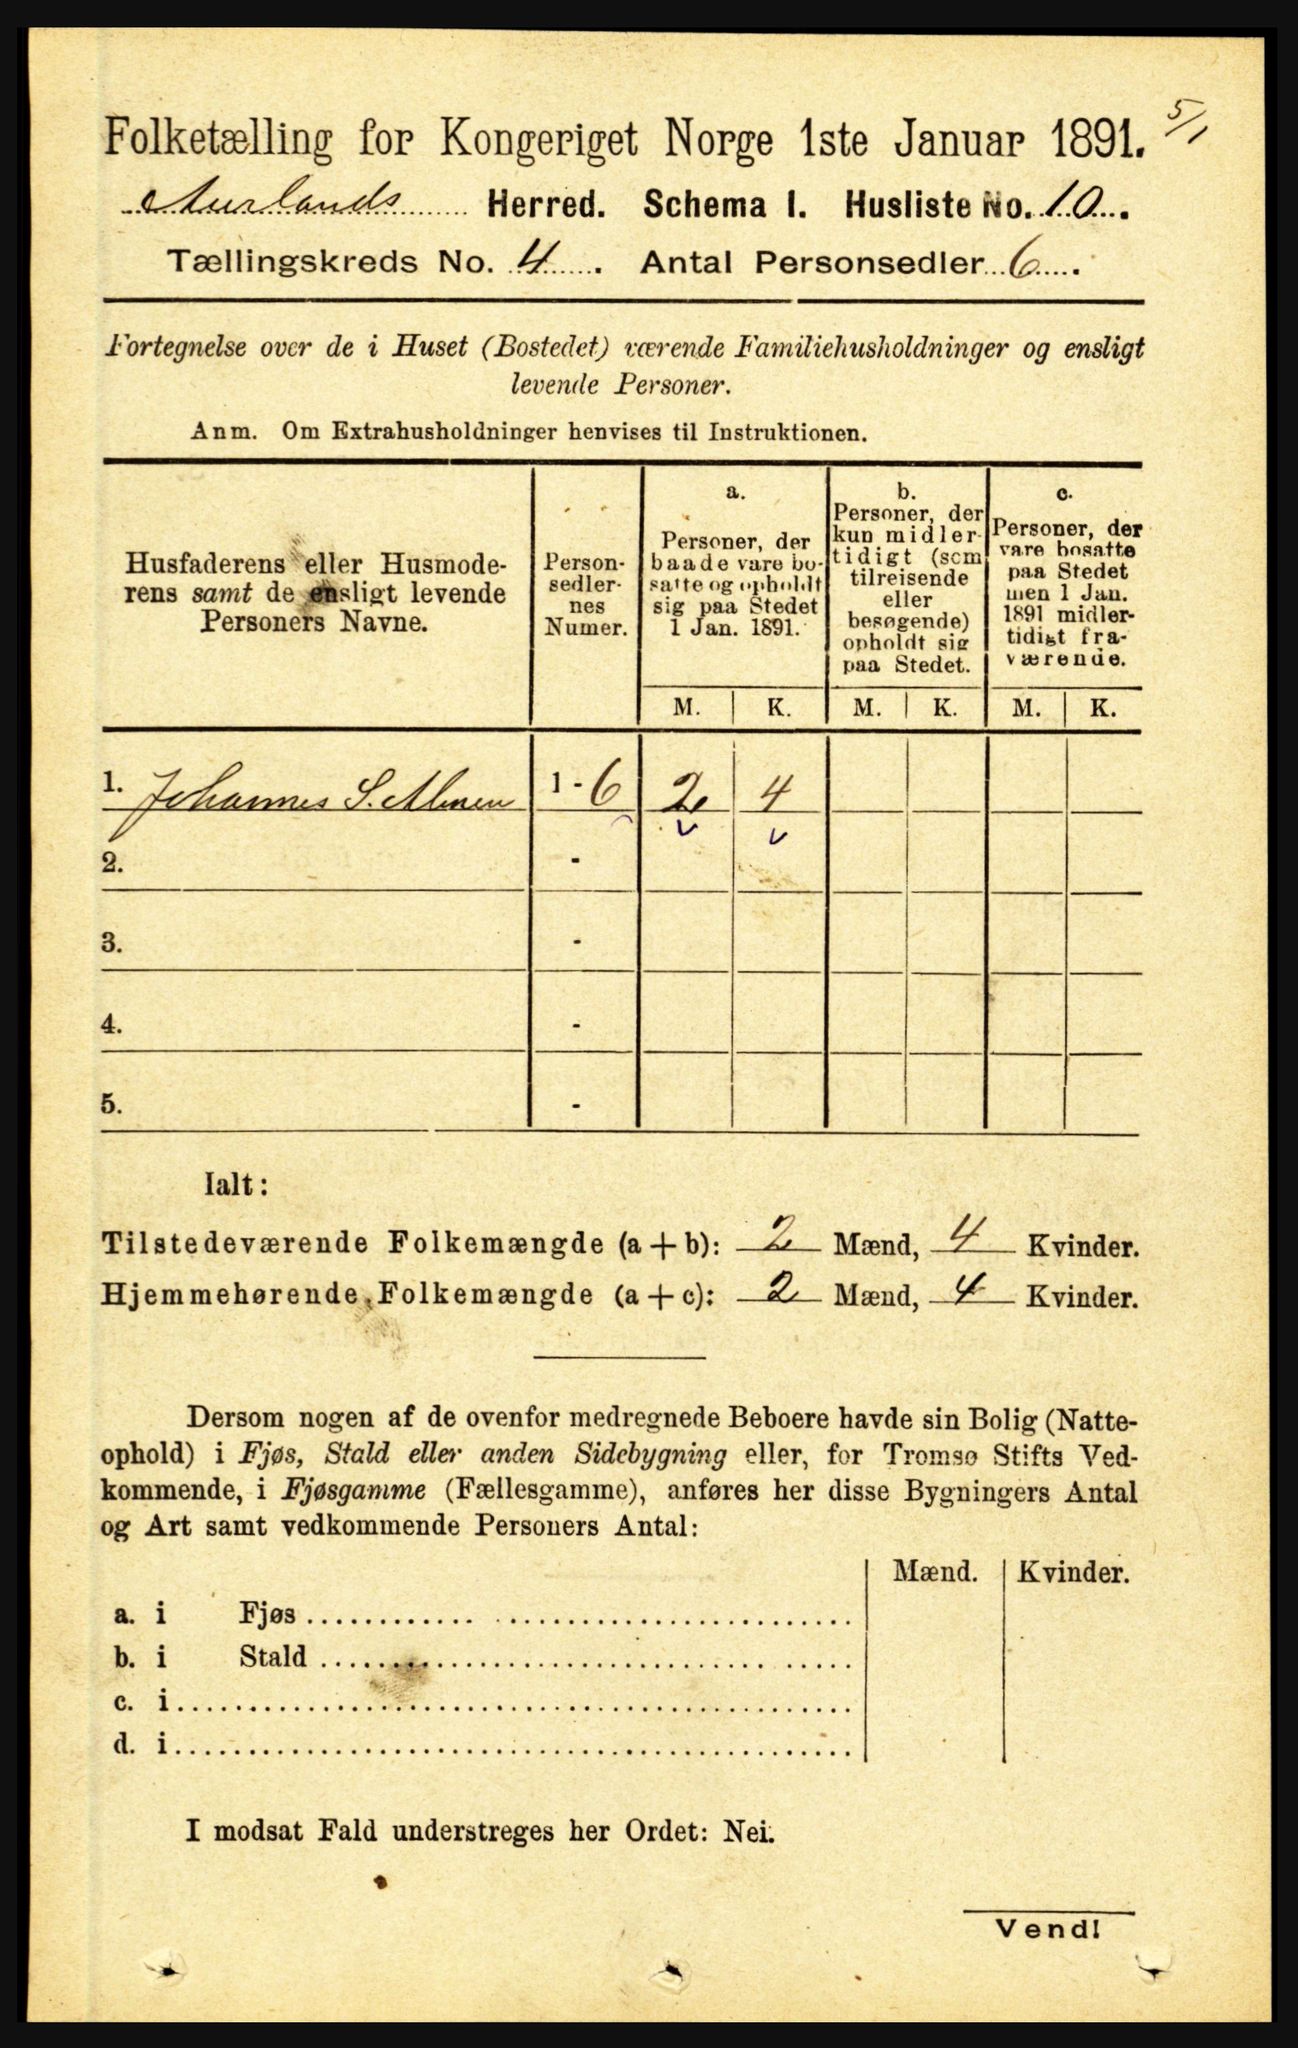 5/1
Folketælling for Kongeriget Norge 1ste Januar 1891.
Aurlands Herred. Schema I. Husliste No. 10.
Tællingskreds No. 4. Antal Personsedler 6.
Fortegnelse over de i Huset (Bostedet) værende Familiehusholdninger og ensligt
levende Personer.
Anm. Om Extrahusholdninger henvises til Instruktionen.
Husfaderens eller Husmode-
rens samt de ensligt levende
Personers Navne.
Person-
sedler-
nes
Numer.
a.
Personer, der
baade vare bo-
satte og opholdt
sig paa Stedet
1 Jan. 1891.
b.
Personer, der
kun midler-
tidigt (som
tilreisende
eller
besøgende)
opholdt sig
paa Stedet.
c.
Personer, der
vare bosatte
paa Stedet
men 1 Jan.
1891 midler-
tidigt fra-
værende.
M. K. M. K. M. K.
1. Johannes S. 1 - 6 2 4
2. -
3. -
4. -
5. -
Ialt:
Tilstedeværende Folkemængde (a + b): 2 Mænd, 4 Kvinder.
Hjemmehørende Folkemængde (a + c): 2 Mænd, 4 Kvinder.
Dersom nogen af de ovenfor medregnede Beboere havde sin Bolig (Natte-
ophold) i Fjøs, Stald eller anden Sidebygning eller, for Tromsø Stifts Ved-
kommende, i Fjøsgamme (Fællesgamme), anføres her disse Bygningers Antal
og Art samt vedkommende Personers Antal:
Mænd. Kvinder.
a. i Fjøs
b. i Stald
c. i
d. i
I modsat Fald understreges her Ordet: Nei.
Vend!